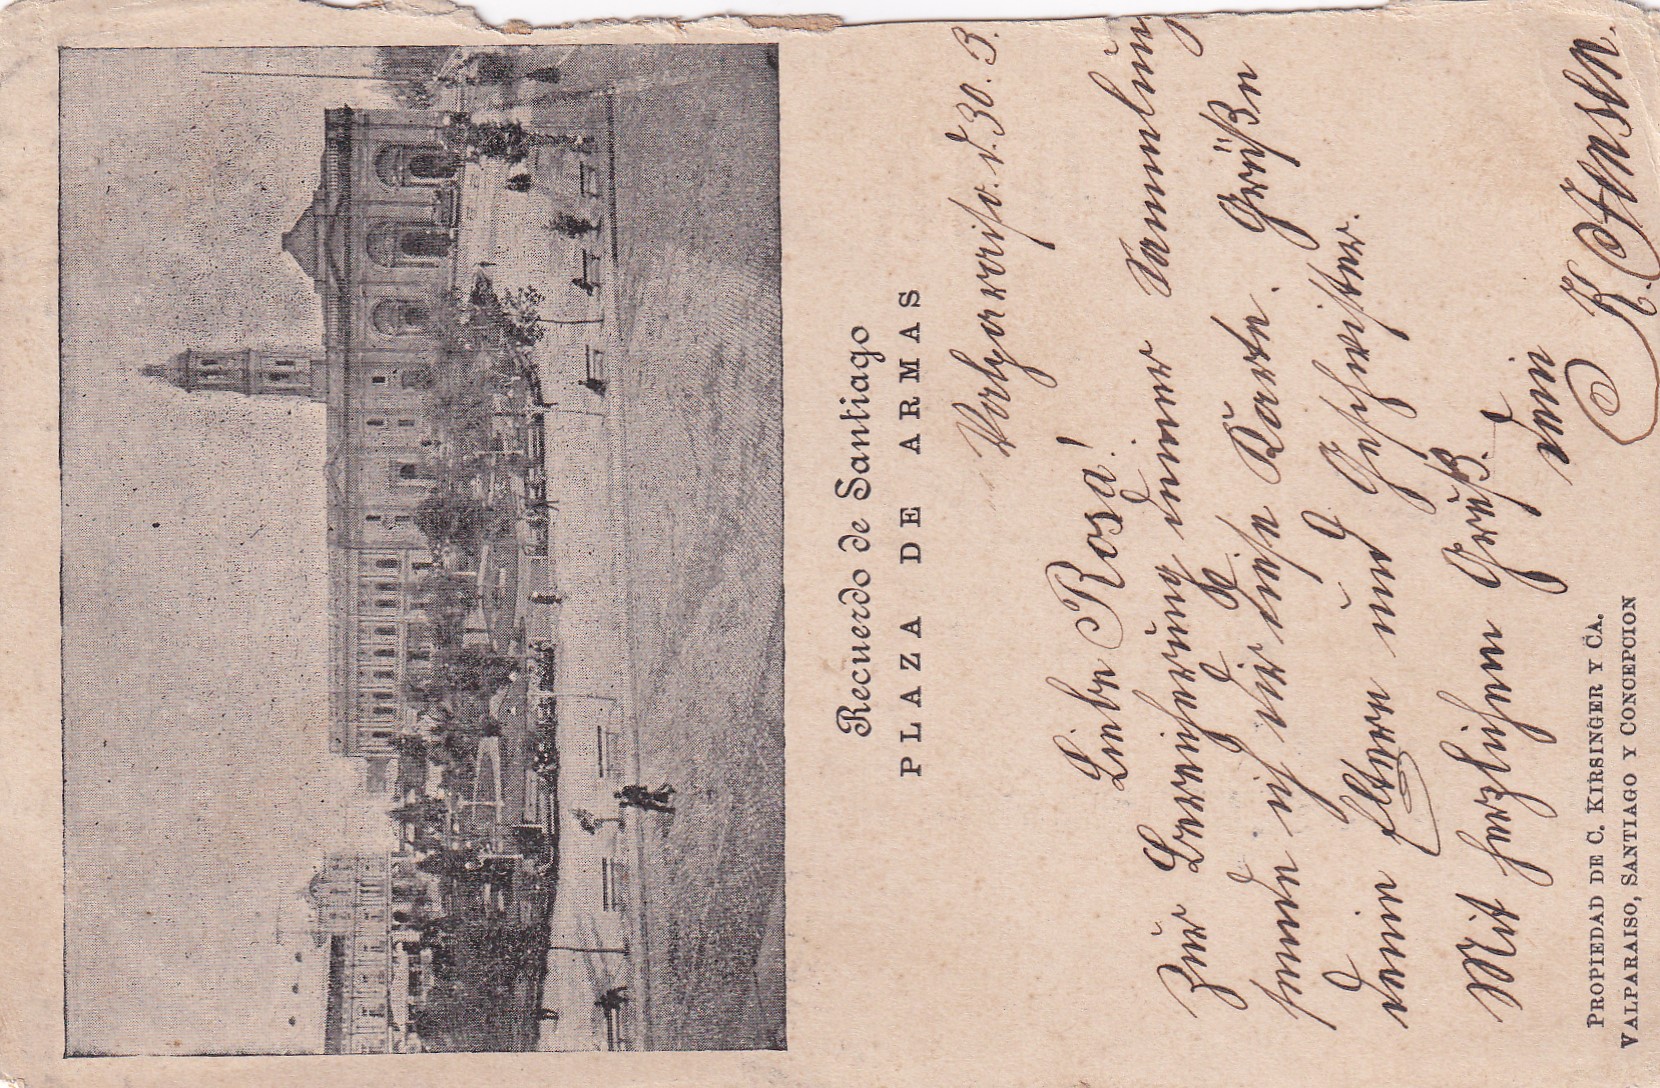 Recuerdo de Santiago
PLAZA DE ARMAS
Valparaiso. d. 30. 3.
Liebe Rosa!
Zur Bereicherung deiner Sammlung
sende ich dir diese Karte. Grüße
deine Eltern und Geschwister.
Mit herzlichem Gruß.
dein
K.
PROPIEDAD DE C. KIRSINGER Y CA.
VALPARAISO, SANTIAGO Y CONCEPCION